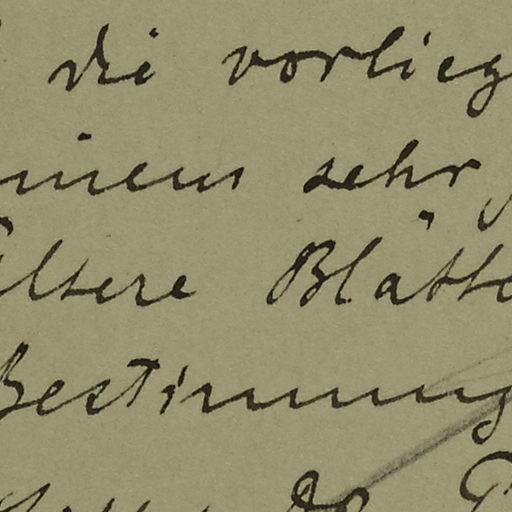 die vorlieg
inem sehr
ältere Blätte
Bestimmung